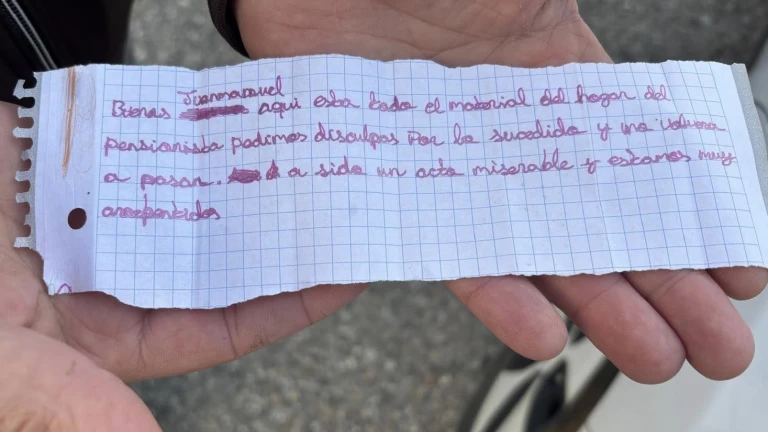 Juanmanuel
Buenas aqui esta todo el material del hogar del
pensionista pedimos disculpas por lo sucedido y no volvera
a pasar. a sido un acto miserable y estamos muy
arrepentidos